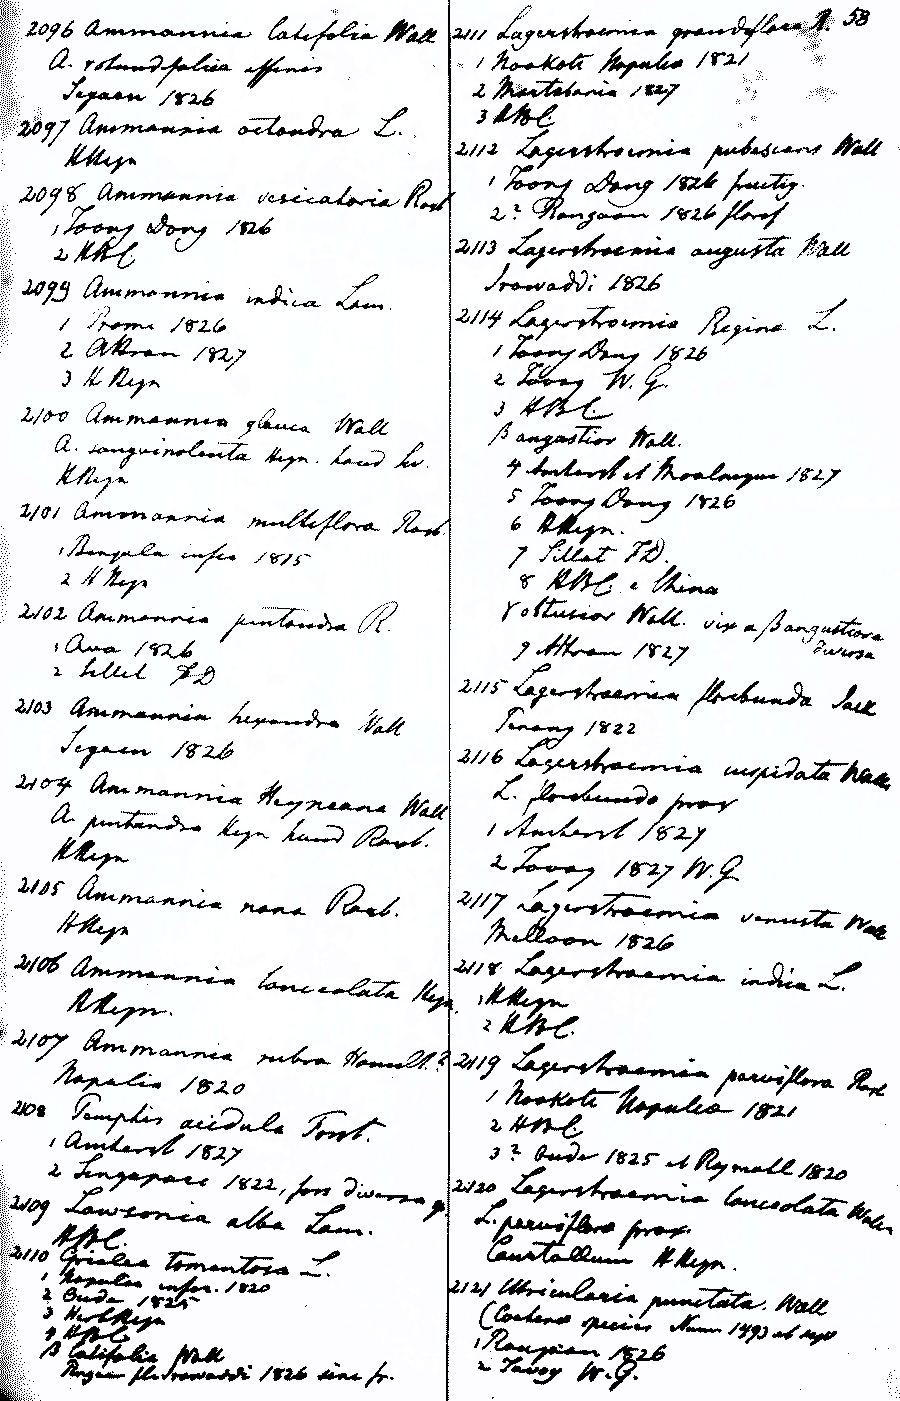 58
2096 Ammannia latifolia Wall
A. rotundifolia affinis
Segaen 1826
2097 Ammannia octandra L.
HHeyn
2098 Ammannia vesicatoria Roxb
1 Toong Dong 1826
2 HBC
2099 Ammannia indica Lam.
1 Prome 1826
2 Attran 1827
3 H Heyn
2100 Ammannia glauca Wall
A. sanguinolenta Heyn. haud
HHeyn
2101 Ammannia multiflora Roxb.
1 Bengala infer 1815
2 H Heyn
2102 Ammannia pentandra R.
1 Ava 1826
2 Sillet FD
2103 Ammannia hexandra Wall
Segaen 1826
2104 Ammannia Heyneana Wall
A. pentandra Heyn haud Roxb.
HHeyn
2105 Ammannia nana Roxb.
HHeyn
2106 Ammannia lanceolata Heyn
HHeyn.
2107 Ammannia rubra Hamilt.?
Napalia 1820
2108 Pemphis acidula Forst.
1 Amherst 1827
2 Singapore 1822, fors diversa
2109 Lawsonia alba Lam.
HBC.
2110 Grislea tomentosa L.
1 Napalea infer. 1820
2 Oude 1825
3 HerbHeyn
4 HBC
β latifolia Wall
1826 sine fr.
2111 Lagerstroemia grandiflora R.
1 Noakote Napalia 1821
2 Martabania 1827
3 HBC
2112 Lagerstroemia pubescens Wall
1 Toong Dong 1826 fructig.
2? Rangoon 1826 floref
2113 Lagerstroemia augusta Wall
Irawaddi 1826
2114 Lagerstroemia Regina L.
1 Toong Dong 1826
2 Tavoy W.G.
3 HBC
β angustior Wall.
4 Amherst et Moalmeyne 1827
5 Toong Dong 1826
6 HHeyn.
7 Sillet FD.
8 HBC e China
γ obtusior Wall. vix a β angustiore
diversa
9 Attran 1827
2115 Lagerstroemia floribunda Jack
Penang 1822
2116 Lagerstroemia cuspidata Wall
L. floribunda prox
1 Amherst 1827
2 Tavoy 1827 W.G
2117 Lagerstroemia venusta Wall
Melloon 1826
2118 Lagerstroemia indica L.
1 HHeyn
2 HBC.
2119 Lagerstroemia parviflora Roxb
1 Noakote Napalia 1821
2 HBC.
3? Oude 1825 et Rajmahl 1820
2120 Lagerstroemia lanceolata Wall
L. parviflora prox.
Courtallum HHeyn.
2121 Utricularia punctata. Wall
(Caetera species Num 1493 et seqq
1 Rangoon 1826
2 Tavoy W.G.